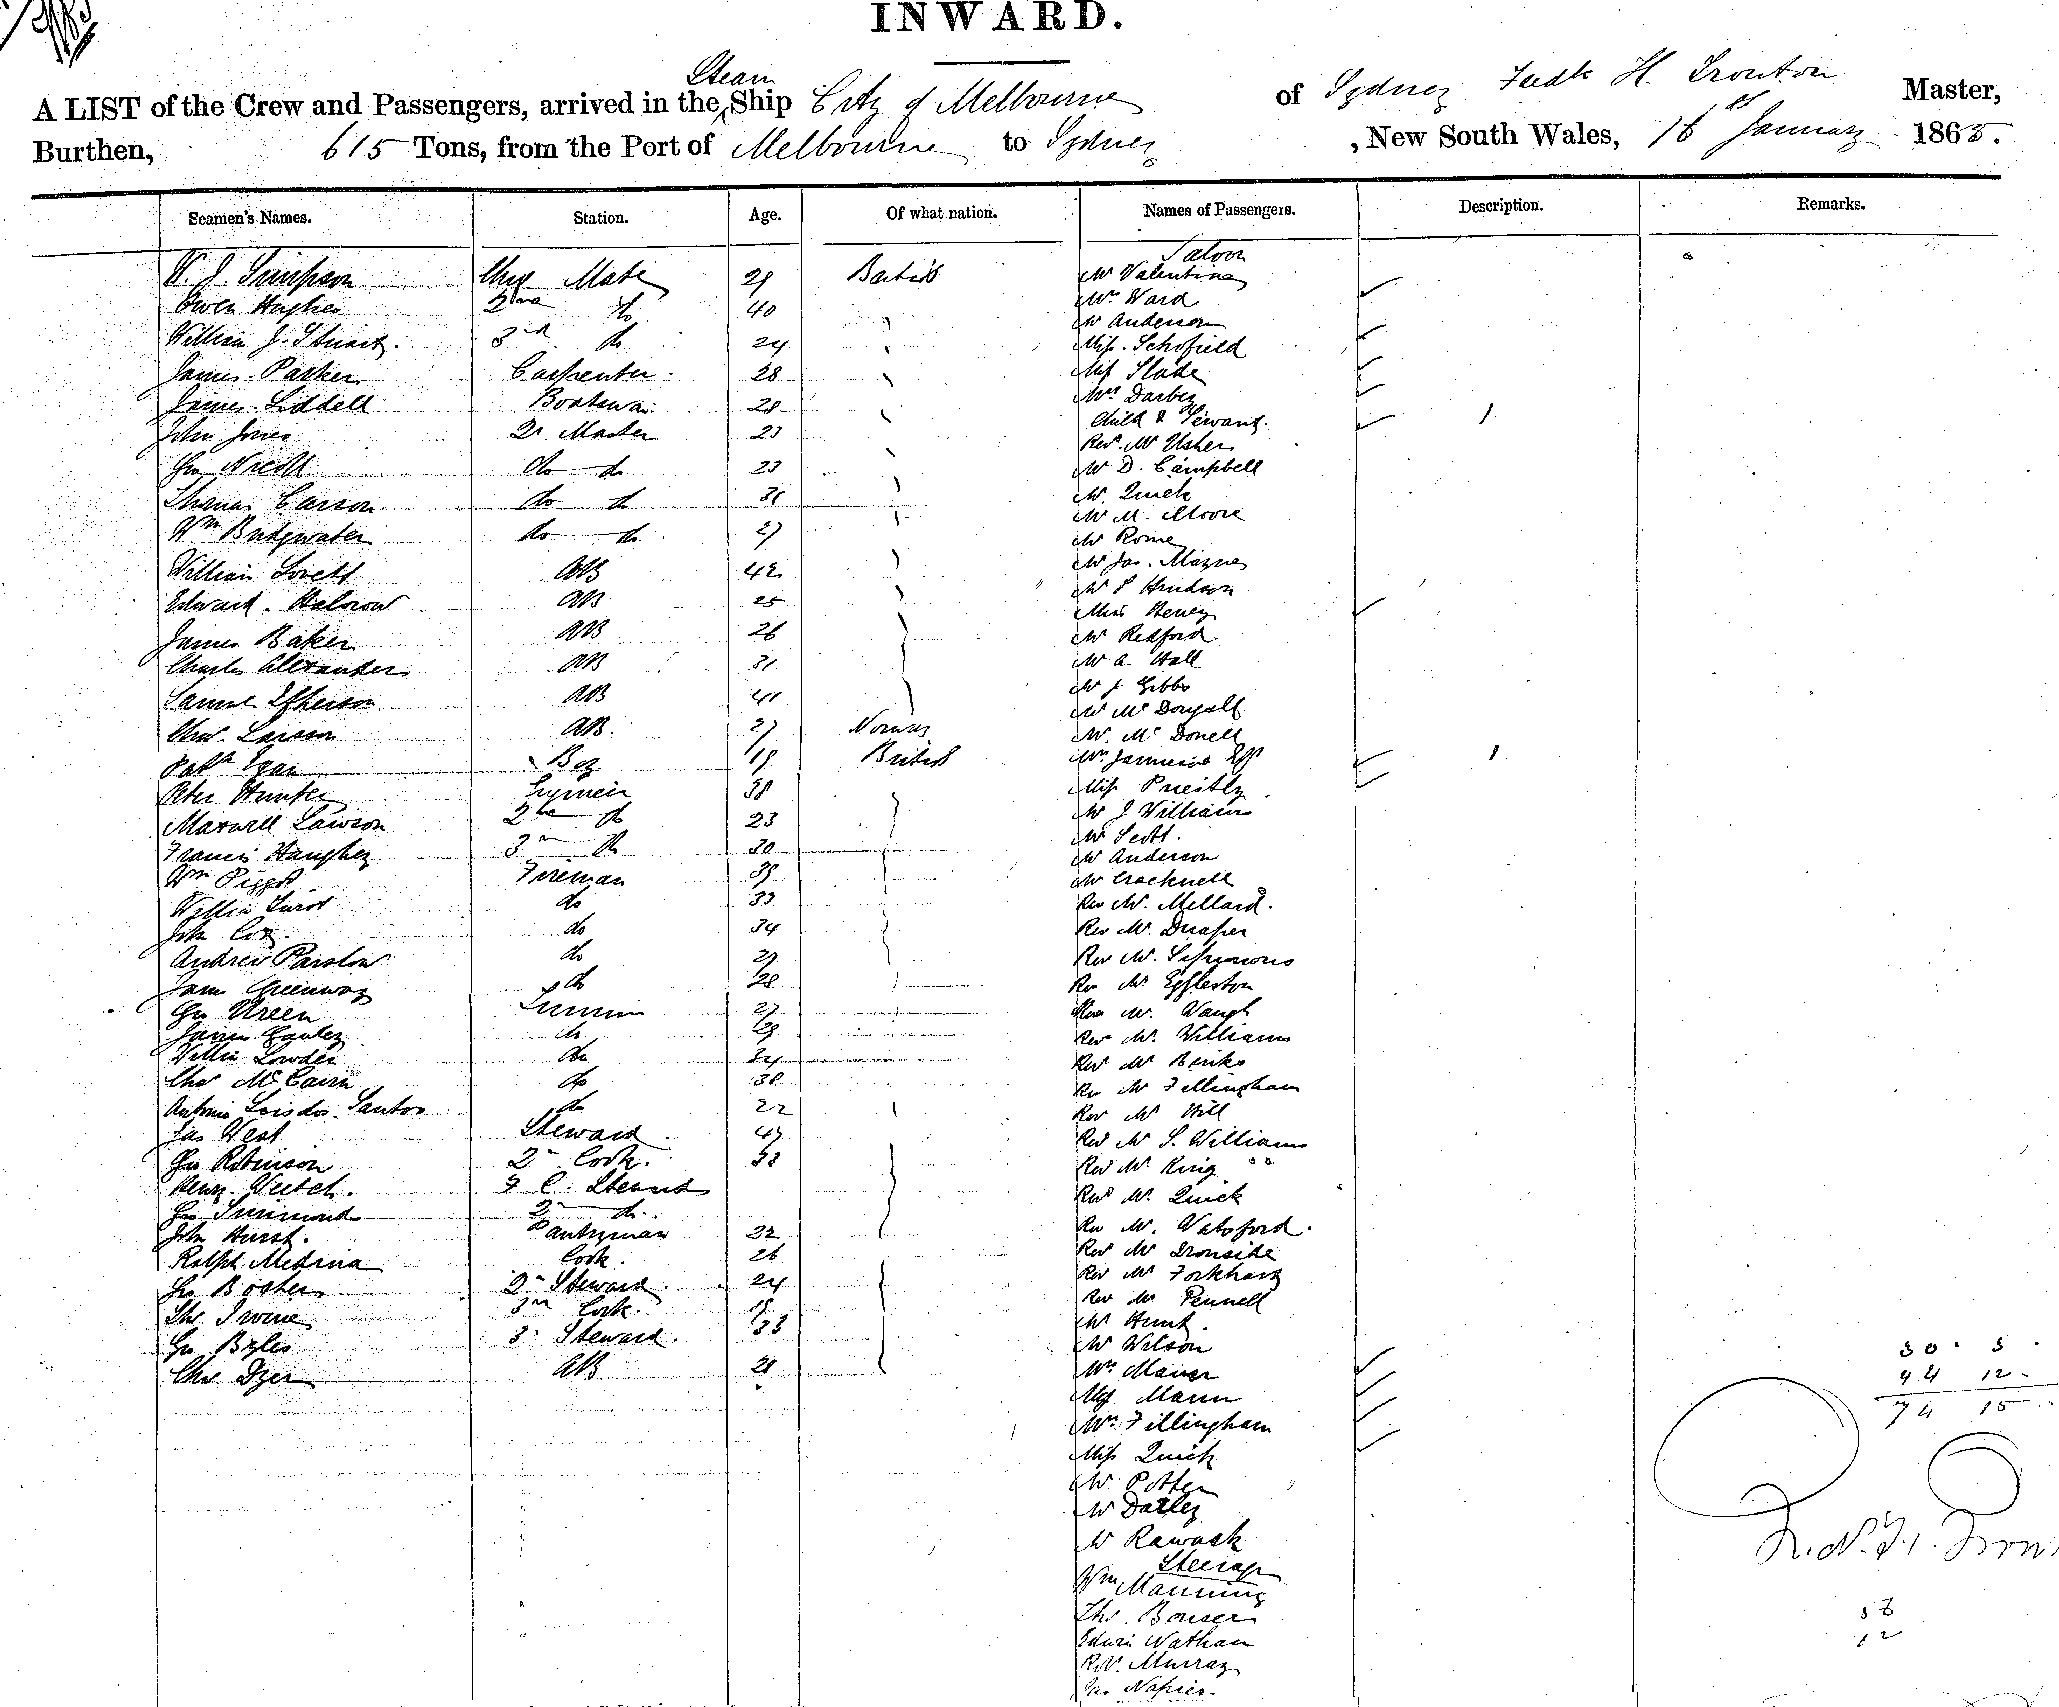 INWARD.
Steam
A LIST of the Crew and Passengers, arrived in the Ship City of Melbourne of Sydney Fredk H. Trouton Master,
Burthen, 615 Tons, from the Port of Melbourne to Sydney, New South Wales, 16 January 1865.
Seamen's Names. Station. Age. Of what nation. Names of Passengers. Description. Remarks.
Saloon
W. J. Simpson Chief Mate 29 British Mr Valentine
Owen Hughes 2nd do 40 Mrs Ward
Mr Anderson
William J. Stuart. 3rd do 24 Miss Schofield
James Parker Carpenter 28 Miss Slade
Mrs Darbey
James Liddell Boatswain 28 Child & Servant.
John Jones Qr Master 23 Revd Mr Usher
do do 23 Mr D. Campbell
Thomas Carson do do 31 Mr Quick
Mr M. Moore
Wm Bridgwater do do 27 Mr Rome
William Lovett AB 42 Mr Jas. Mayne
Edward AB 25 Mr Hudson
Miss Heney
James Baker AB 26 Mr Redford
Charles Alexander AB 31 Mr A Hall
Samuel AB 41 Mr J Gibbs
Mr McDougall
Chas. Larson AB. 27 Norway Mr McDonell
Patk Egan Boy 19 British Mrs
Peter Hunter 38 Miss Priestly
Maxwell Lawson 2nd do 23 Mr J Williams
Mr Scott.
Francis Haughey 3rd do 30 Mr Anderson
Wm Piggot Fireman 39 Mr Cracknell
William do 33 Rev Mr. Mellard.
John Cox. do 34 Rev Mr. Draper
Andrew Parslow do 29 Rev Mr.
James Greenway do 28 Rev Mr Eggleston
Geo Ureen 27 Rev Mr. Waugh
James do 29 Rev Mr. Williams
William Lowden do 34 Rev Mr Binks
Chas McCann do 38 Rev Mr Fillingham
Antonio Santos do 22 Rev Mr Hill
Jas West Steward 49 Rev Mr S. Williams
Geo Robinson 2nd Cook. 33 Rev Mr King
Henry Veitch. F C. Steward Rev Mr. Quick
Geo Simmonds 2 do. Rev Mr. Watsford.
John Hurst. Pantryman 32 Rev Mr Ironside
Ralph Medina Cook. 26 Rev Mr
Jno 2nd Steward. 24 Rev Mr Pennell
Thos Irvine 3rd Cook. 19 Mr Hunt.
Geo Byles 3 Steward. 33 Mr Wilson
Chas Dyer AB 28 Mrs Mann
Miss Mann
Mrs Fillingham
Miss Quick
Mr. Potter
Mr Darley
Mr
Steerage
Wm Manning
Thos. Bonser
Edwin Nathan
Murray
Jas Napier.
30 3
44 12
74 15
12